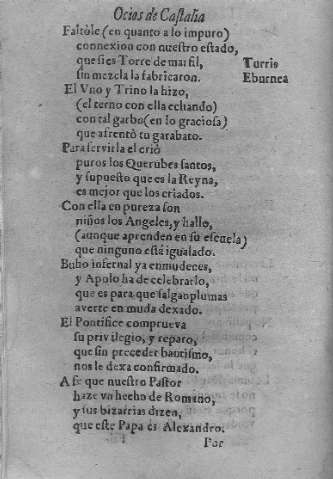 Ocios de Castalia
Faltòle (en quanto a lo impuro)
connexion con nuestro estado,
que si es Torre de marfil, Turris
sin mezcla la fabricaron. Eburnea
El Vno y Trino la hizo,
(el terno con ella echando)
con tal garbo (en lo graciosa)
que afrentò tu garabato.
Para servirla el criò
puros los Querubes santos,
y supuesto que es la Reyna,
es mejor que los criados.
Con ella en pureza son
niños los Angeles, y hallo,
(aunque aprenden en su escuela)
que ninguno està igualado.
Buho infernal ya enmudeces,
y Apolo ha de celebrarlo,
que es para que salgan plumas
averte en muda dexado.
El Pontifice comprueva
su privilegio, y reparo,
que sin preceder bautismo,
nos le dexa confirmado.
A fe que nuestro Pastor
haze vn hecho de Romano,
y sus bizarrias dizen,
que este Papa es Alexandro.
Por